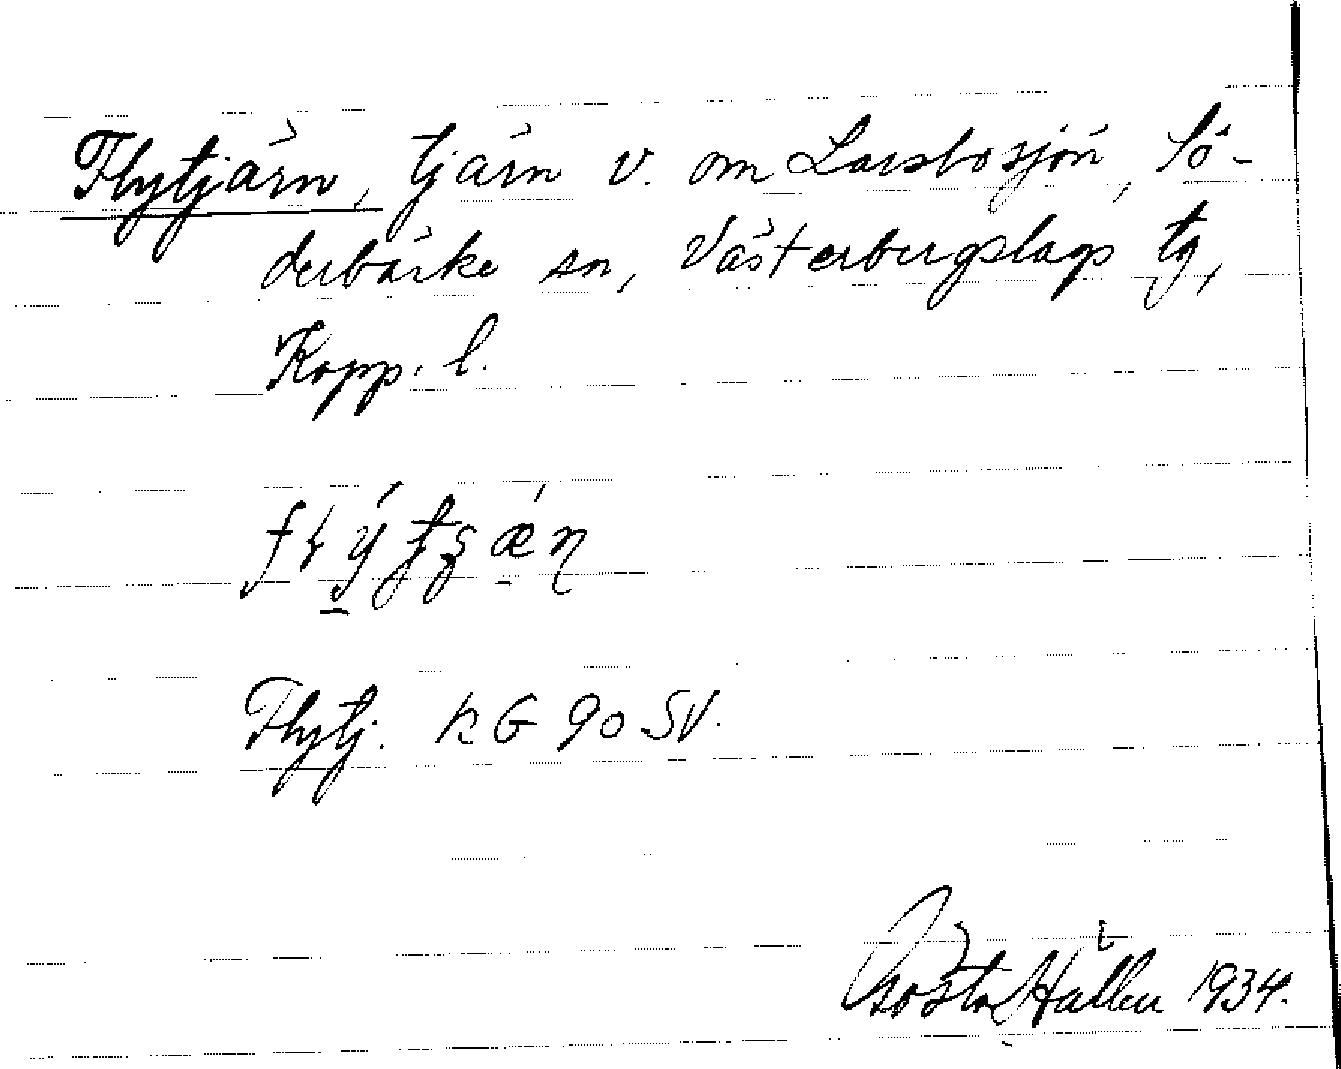 Flytjärn, tjärn v. om Larsbosjön, Sö-
derbärke sn, Västerbergslags tg,
Kopp. l.
Flytj. KG 90 SV.
Gösta Hallén 1934.